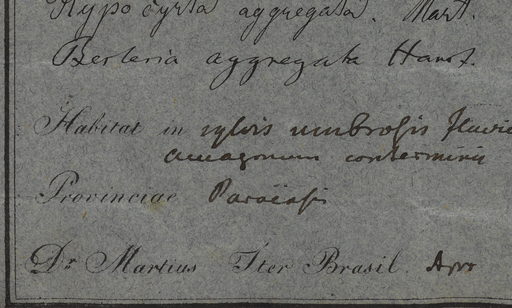 Hypocyrta aggregata. Mart.
Besleria aggregata
Habitat in sylvis umbrosis
amazonum conterminis
Provinciae Paraënsis
Dr. Martius Iter Brasil.